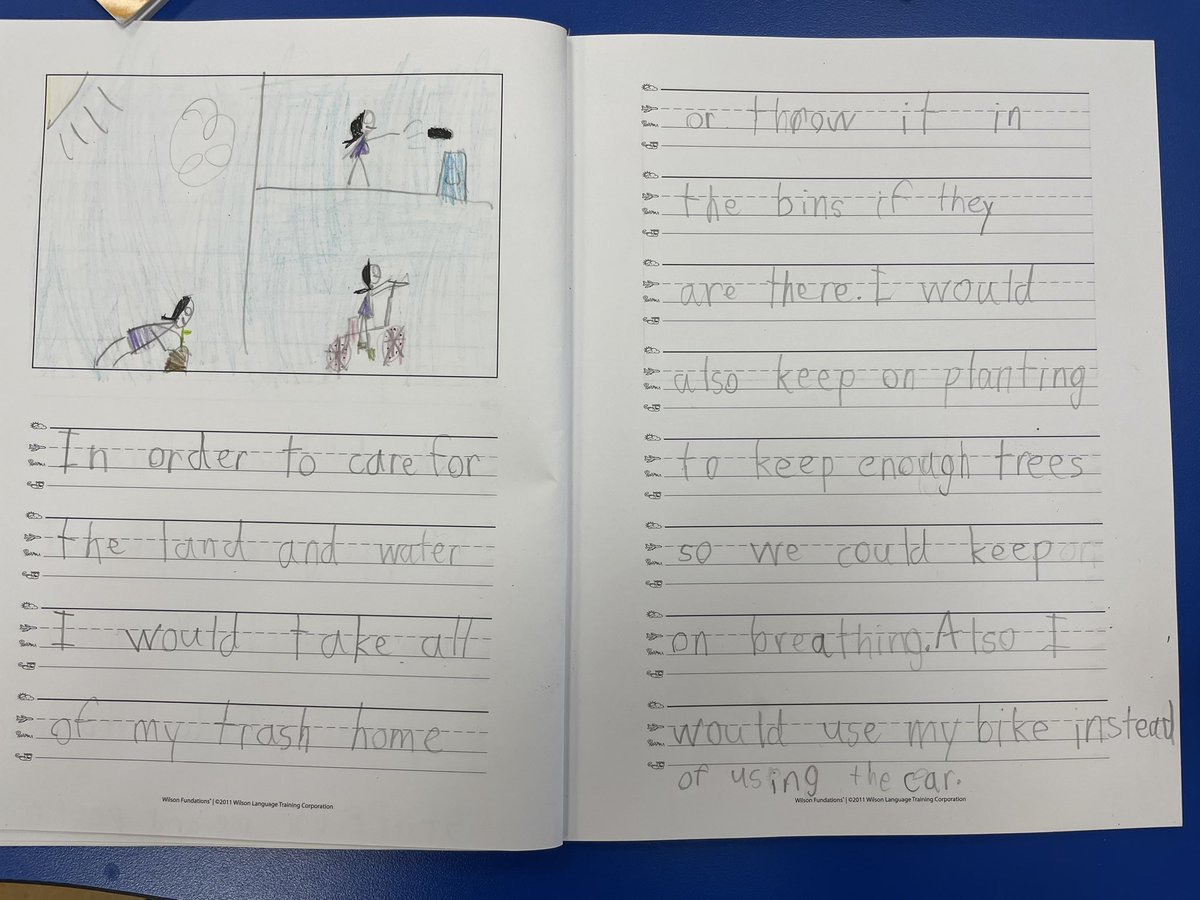 In order to care for
the land and water
I would take all
of my trash home
Wilson Fundations® | ©2011 Wilson Language Training Corporation
or throw it in
the bins if they
are there. I would
also keep on planting
to keep enough trees
so we could keep on
on breathing. Also I
would use my bike instead
of using the car.
Wilson Fundations® | ©2011 Wilson Language Training Corporation